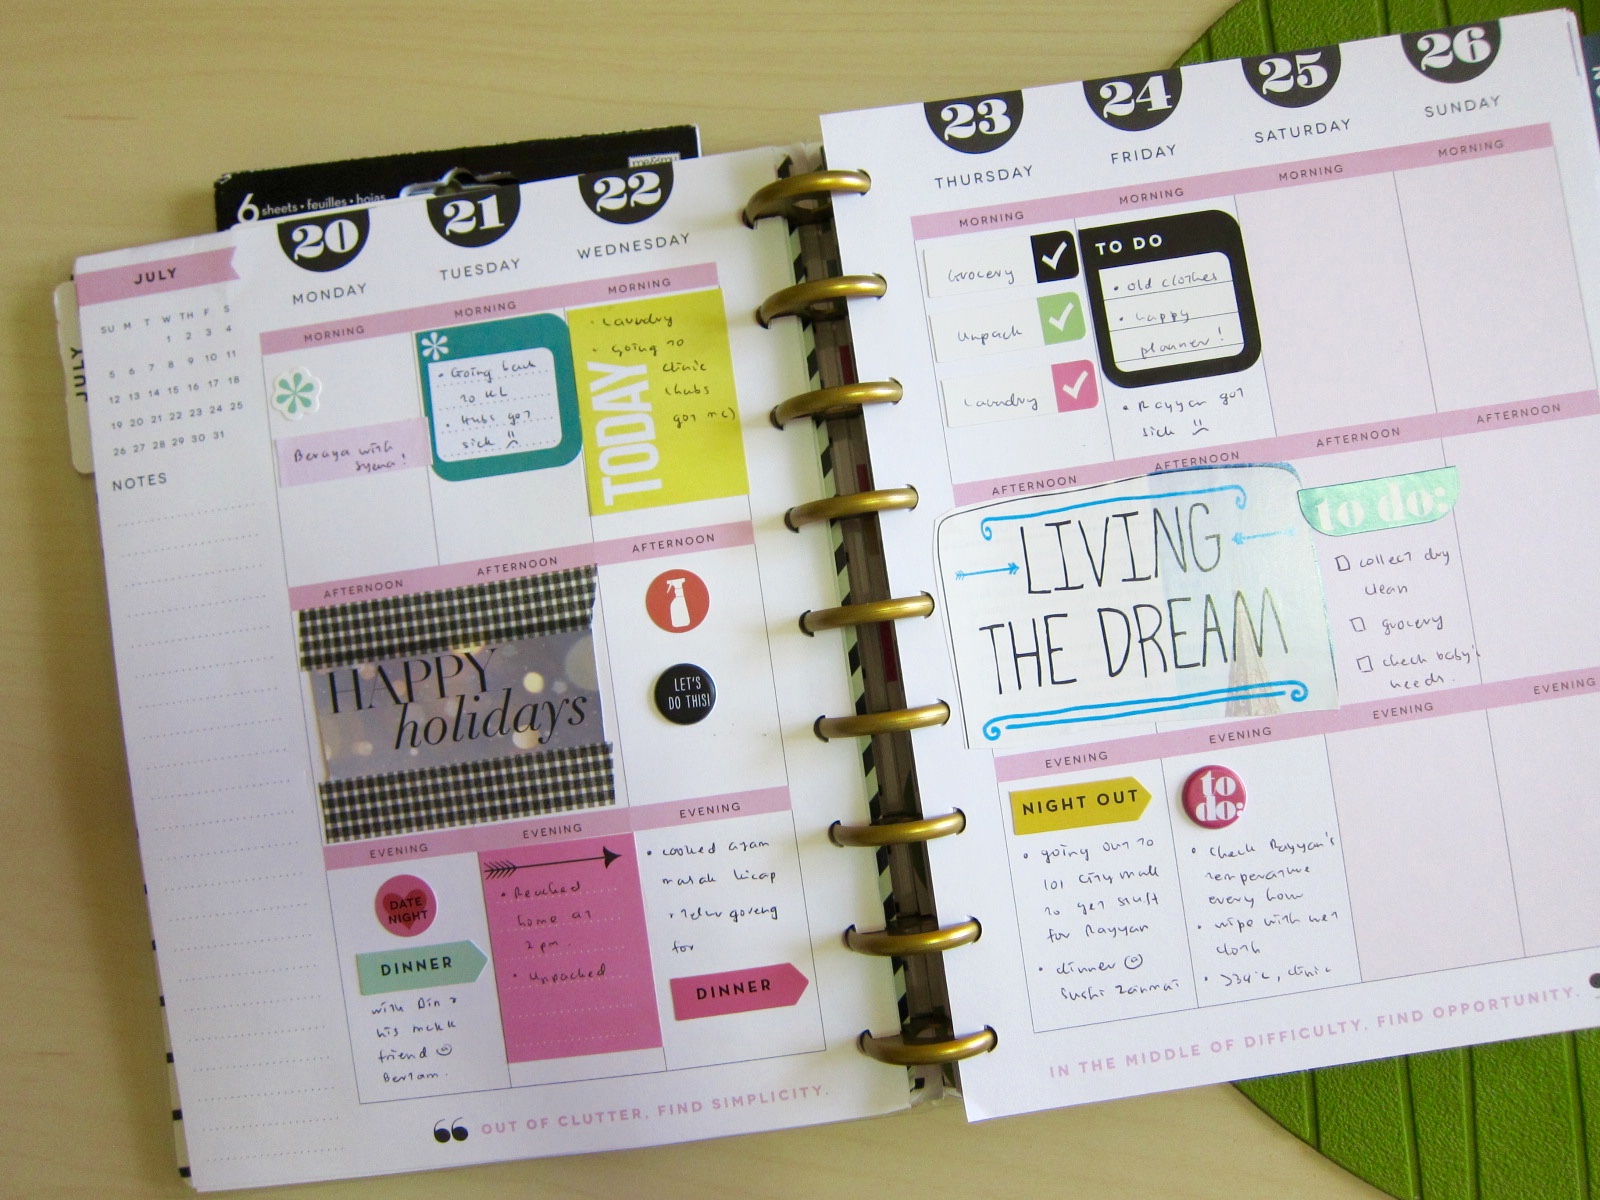 6 sheets • feuilles • hojas
JULY
JULY
SU M T W TH F S
1 2 3 4
5 6 7 8 9 10 11
12 13 14 15 16 17 18
19 20 21 22 23 24 25
26 27 28 29 30 31
NOTES
20
MONDAY
MORNING
Beraya with
Syena!
AFTERNOON
HAPPY
holidays
EVENING
DATE
NIGHT
DINNER
with Din &
his
friend @
Bertam.
21
TUESDAY
MORNING
• Going back
to KL
• Hubs got
sick
AFTERNOON
EVENING
• Reached
home at
2 pm.
• unpacked
22
WEDNESDAY
MORNING
TODAY
• Laundry
• Going to
clinic
(hubs
got mc)
AFTERNOON
LET'S
DO THIS!
EVENING
• cooked ayam
masak kicap
& telur goreng
for
DINNER
OUT OF CLUTTER, FIND SIMPLICITY.
23
THURSDAY
MORNING
Grocery
Unpack
Laundry
AFTERNOON
LIVING
THE DREAM
EVENING
NIGHT OUT
• going out to
101 City mall
to get stuff
for Rayyan
• dinner @
Sushi Zanmai
24
FRIDAY
MORNING
TO DO
• old clothes
• happy
planner!
• Rayyan got
sick
AFTERNOON
EVENING
to
do:
• check Rayyan's
temperature
every hour
• wipe with wet
cloth
• >39°c, clinic
25
SATURDAY
MORNING
AFTERNOON
to do:
collect dry
clean
grocery
check baby's
needs.
EVENING
26
SUNDAY
MORNING
AFTERNOON
EVENING
IN THE MIDDLE OF DIFFICULTY, FIND OPPORTUNITY.